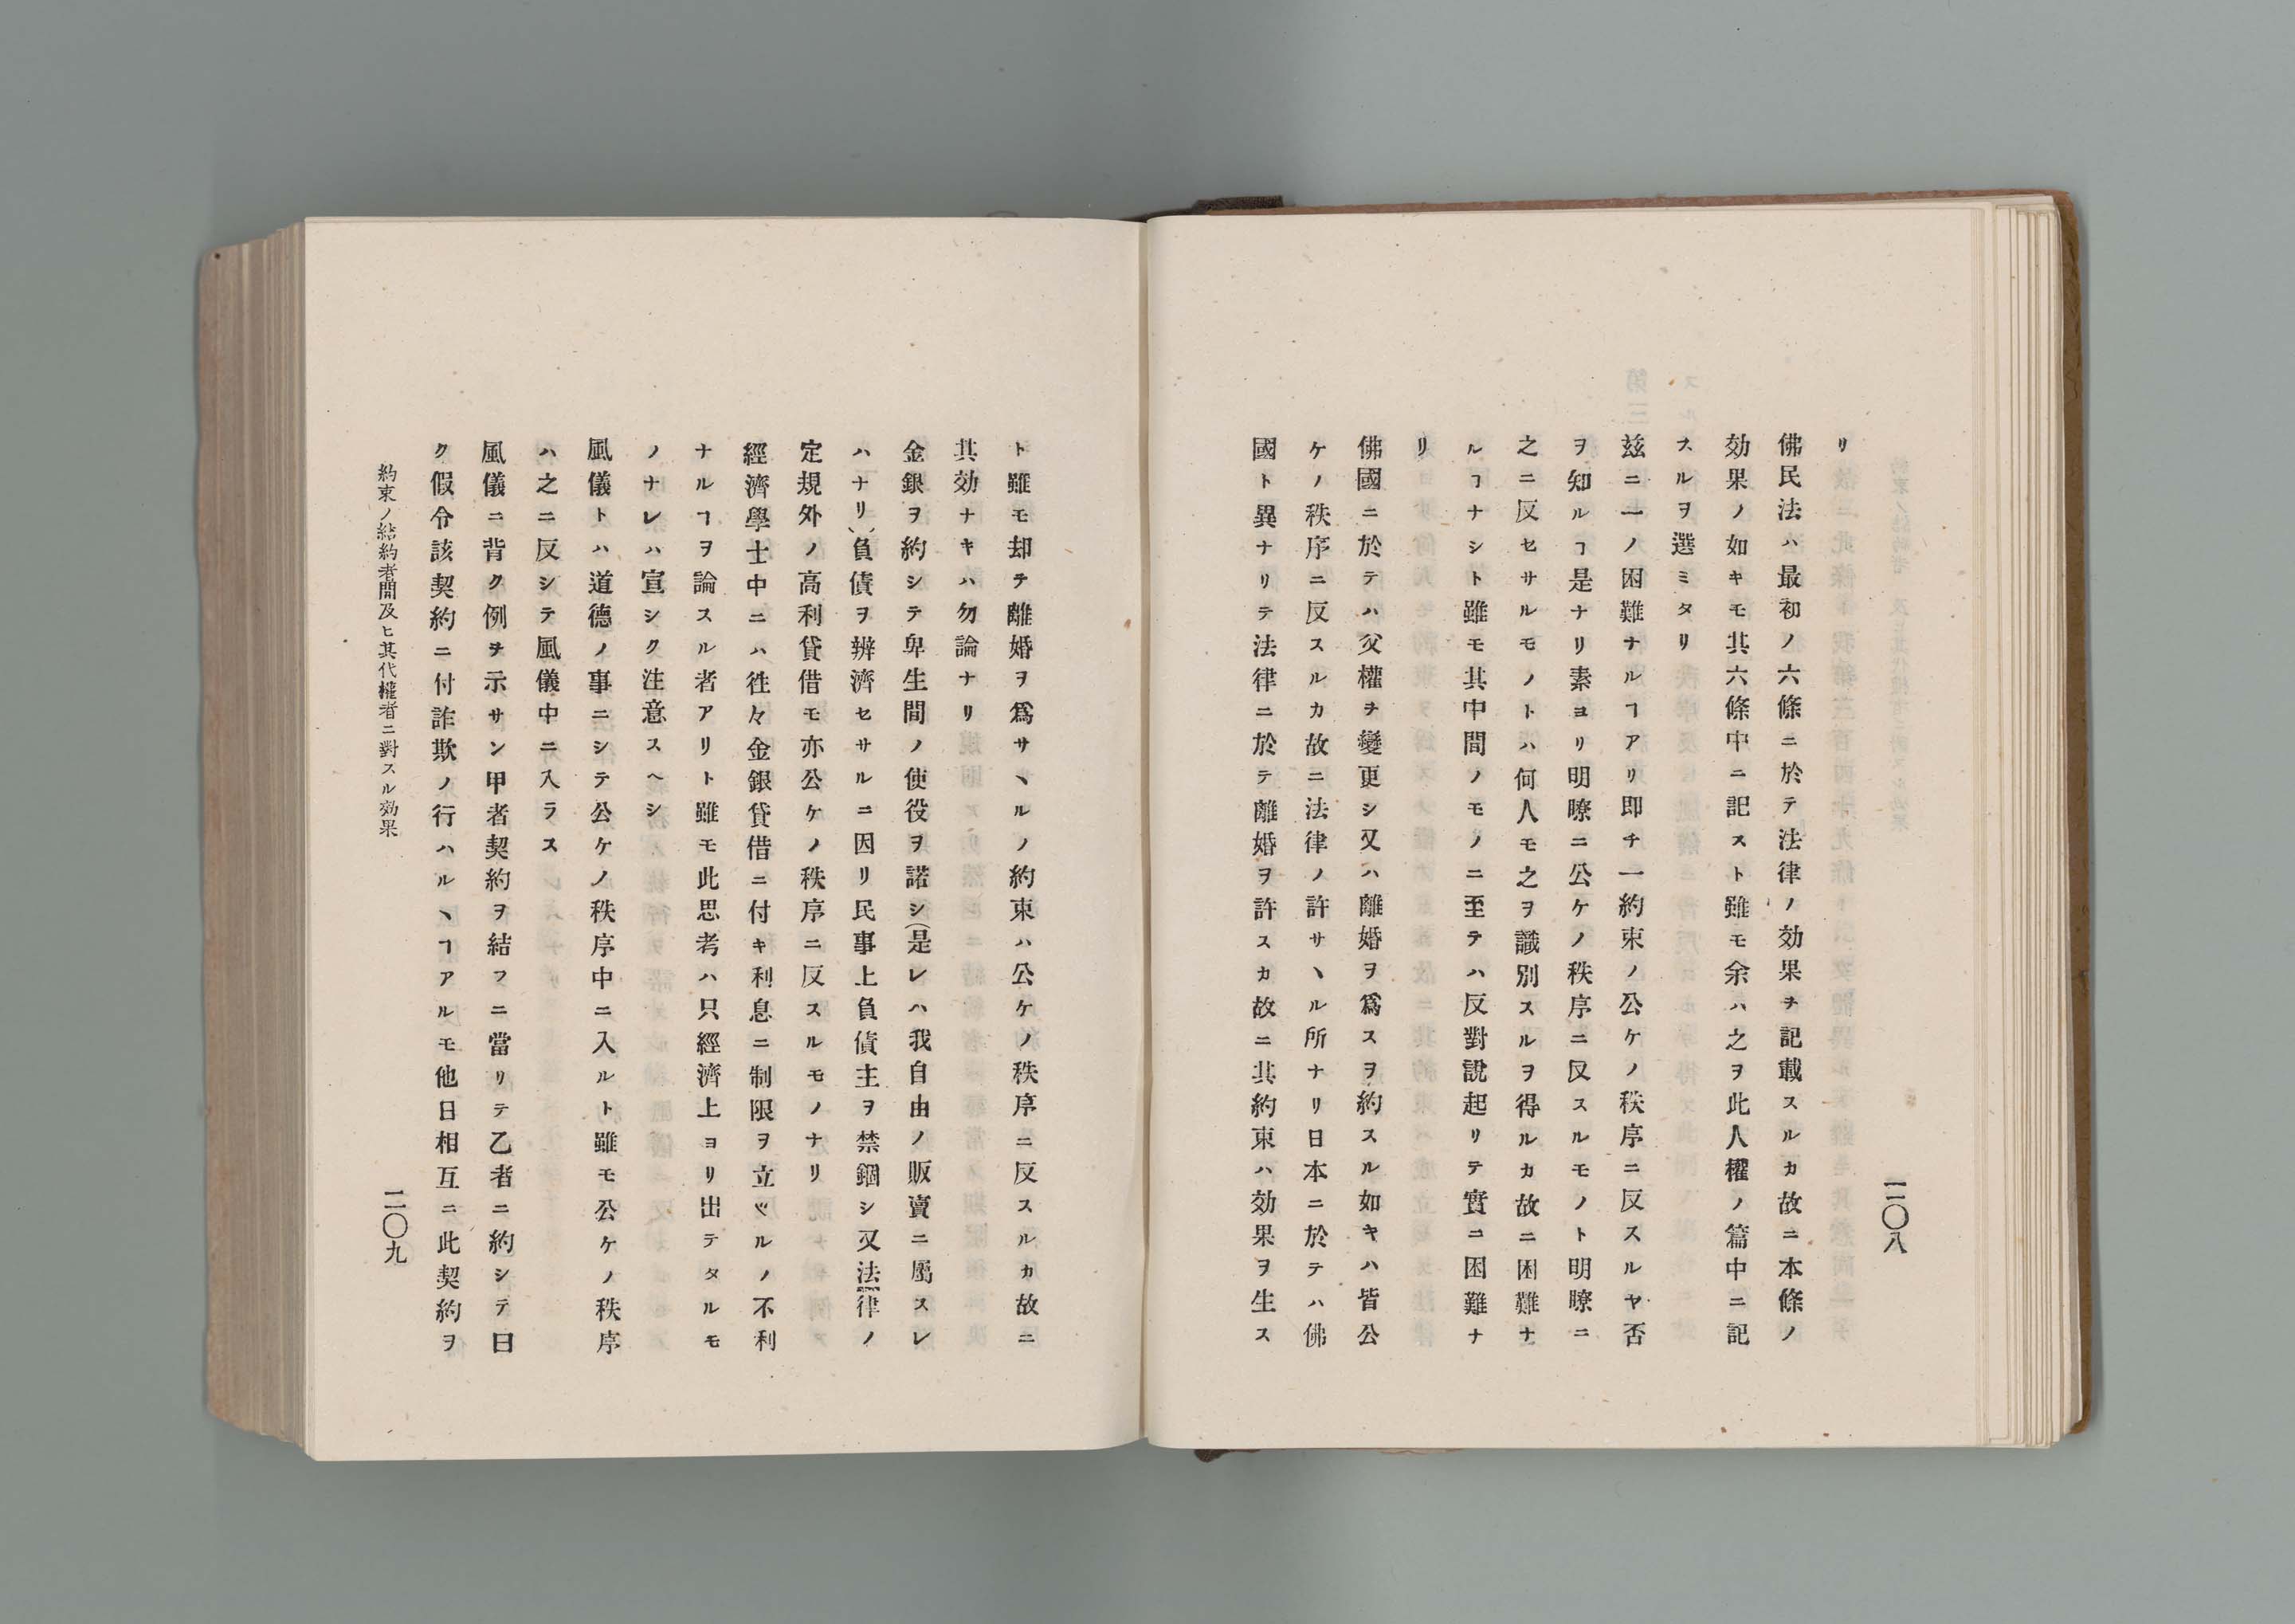 二〇八
リ
佛民法ハ最初ノ六條ニ於テ法律ノ効果ヲ記載スルカ故ニ本條ノ
効果ノ如キモ其六條中ニ記スト雖モ余ハ之ヲ此人權ノ篇中ニ記
スルヲ選ミタリ
玆ニ一ノ困難ナルヿアリ即チ一約束ノ公ケノ秩序ニ反スルヤ否
ヲ知ルヿ是ナリ素ヨリ明瞭ニ公ケノ秩序ニ反スルモノト明瞭ニ
之ニ反セサルモノトハ何人モ之ヲ識別スルヲ得ルカ故ニ困難ナ
ルヿナシト雖モ其中間ノモノニ至テハ反對說起リテ實ニ困難ナ
リ
佛國ニ於テハ父權ヲ變更シ又ハ離婚ヲ爲スヲ約スル如キハ皆公
ケノ秩序ニ反スルカ故ニ法律ノ許サヽル所ナリ日本ニ於テハ佛
國ト異ナリテ法律ニ於テ離婚ヲ許スカ故ニ其約束ハ効果ヲ生ス
ト雖モ却テ離婚ヲ爲サヽルノ約束ハ公ケノ秩序ニ反スルカ故ニ
其効ナキハ勿論ナリ
金銀ヲ約シテ卑生間ノ使役ヲ諾シ(是レハ我自由ノ販賣ニ屬スレ
ハナリ)負債ヲ辨濟セサルニ因リ民事上負債主ヲ禁錮シ又法律ノ
定規外ノ高利貸借モ亦公ケノ秩序ニ反スルモノナリ
經濟學士中ニハ徃々金銀貸借ニ付キ利息ニ制限ヲ立ツルノ不利
ナルヿヲ論スル者アリト雖モ此思考ハ只經濟上ヨリ出テタルモ
ノナレハ宣シク注意スヘシ
風儀トハ道德ノ事ニシテ公ケノ秩序中ニ入ルト雖モ公ケノ秩序
ハ之ニ反シテ風儀中ニ入ラス
風儀ニ背ク例ヲ示サン甲者契約ヲ結フニ當リテ乙者ニ約シテ曰
ク假令該契約ニ付詐欺ノ行ハルヽヿアルモ他日相互ニ此契約ヲ
約束ノ結約者間及ヒ其代權者ニ對スル効果
二〇九